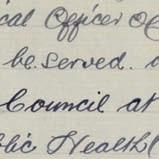 cal Officer of
be served.
Council at
blic Health (